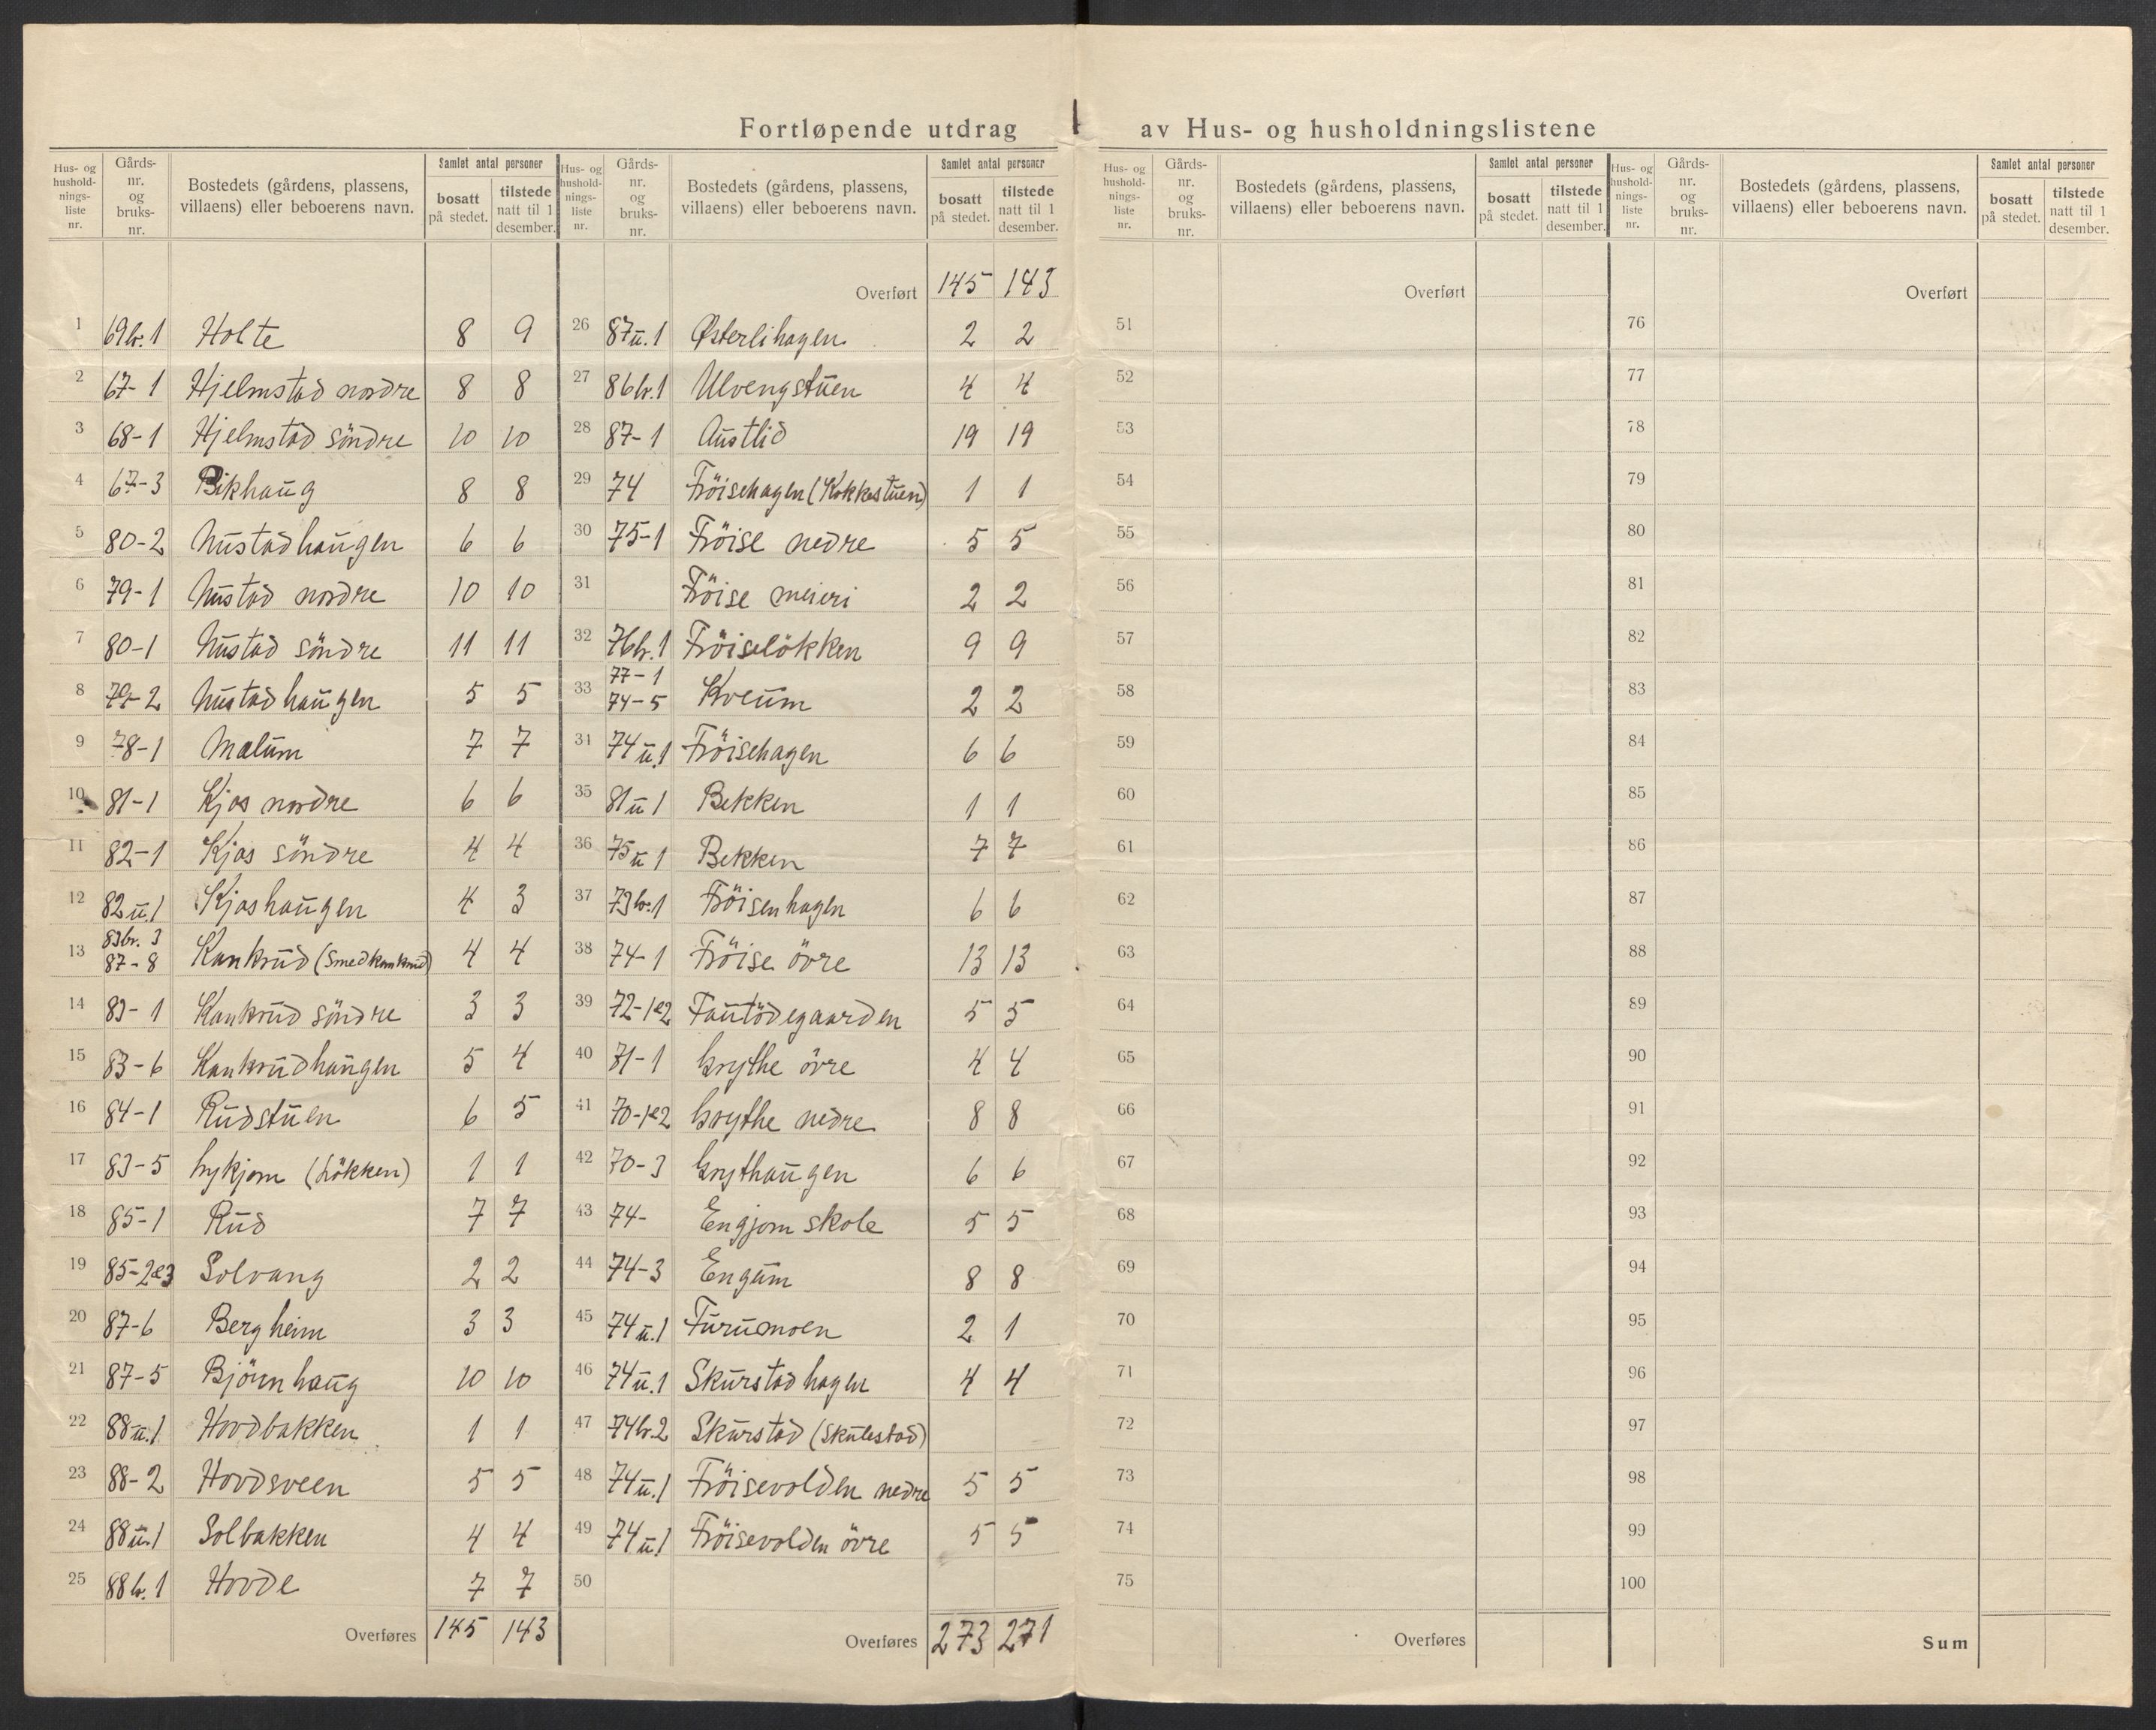 Fortløpende utdrag av Hus- og husholdningslistene
Hus- og hushold- nings- liste nr. Gårds- nr. og bruks- nr. Bostedets (gårdens, plassens, villaens) eller beboerens navn. Samlet antal personer bosatt på stedet. tilstede natt til 1 desember.
Hus- og hushold- nings- liste nr. Gårds- nr. og bruks- nr. Bostedets (gårdens, plassens, villaens) eller beboerens navn. Samlet antal personer bosatt på stedet. tilstede natt til 1 desember.
1 69br.1 Holte 8 9
2 67-1 Hjelmstad nordre 8 8
3 68-1 Hjelmstad söndre 10 10
4 67-3 Bikhaug 8 8
5 80-2 Nustadhaugen 6 6
6 79-1 Nustad nordre 10 10
7 80-1 Nustad söndre 11 11
8 79-2 Nustadhaugen 5 5
9 78-1 Mælum 7 7
10 81-1 Kjos nordre 6 6
11 82-1 Kjos söndre 4 4
12 82u.1 Kjoshaugen 4 3
13 83br. 3 87-8 Kankrud (Smedkankrud) 4 4
14 83-1 Kankrud söndre 3 3
15 83-6 Kankrudhaugen 5 4
16 84-1 Rudstuen 6 5
17 83-5 Lykjom (Lökken) 1 1
18 85-1 Rud 7 7
19 85-2e3 Solvang 2 2
20 87-6 Bergheim 3 3
21 87-5 Björnhaug 10 10
22 88u.1 Hovdbakken 1 1
23 88-2 Hovdsveen 5 5
24 88u.1 Solbakken 4 4
25 88br.1 Hovde 7 7
Overføres 145 143
Overført 145 143
26 87u.1 Østerlihagen 2 2
27 86br.1 Ulvengstuen 4 4
28 87-1 Austlid 19 19
29 74 Fröisehagen (Kokkestuen) 1 1
30 75-1 Fröise nedre 5 5
31 Fröise meieri 2 2
32 76br.1 Fröiselökken 9 9
33 77-1 74-5 Kveum 2 2
31 74u.1 Fröisehagen 6 6
35 81u1 Bekken 1 1
36 75u1 Bekken 7 7
37 73br.1 Fröisenhagen 6 6
38 74-1 Fröise övre 13 13
39 72-1e2 Fautödegaarden 5 5
40 71-1 Grythe övre 4 4
41 70-1e2 Grythe nedre 8 8
42 70-3 Grythaugen 6 6
43 74- Engjom skole 5 5
44 74-3 Engum 8 8
45 74u.1 Furumoen 2 1
46 74u.1 Skurstadhagen 4 4
47 74br.2 Skurstad (Skulestad)
48 74u.1 Fröisevolden nedre 5 5
49 74u.1 Fröisevolden övre 5 5
50
Overføres 273 271
Hus- og hushold- nings- liste nr. Gårds- nr. og bruks- nr. Bostedets (gårdens, plassens, villaens) eller beboerens navn. Samlet antal personer bosatt på stedet. tilstede natt til 1 desember.
Overført
51
52
53
54
55
56
57
58
59
60
61
62
63
64
65
66
67
68
69
70
71
72
73
74
75
Overføres
Hus- og hushold- nings- liste nr. Gårds- nr. og bruks- nr. Bostedets (gårdens, plassens, villaens) eller beboerens navn. Samlet antal personer bosatt på stedet. tilstede natt til 1 desember.
Overført
76
77
78
79
80
81
82
83
84
85
86
87
88
89
90
91
92
93
94
95
96
97
98
99
100
Sum